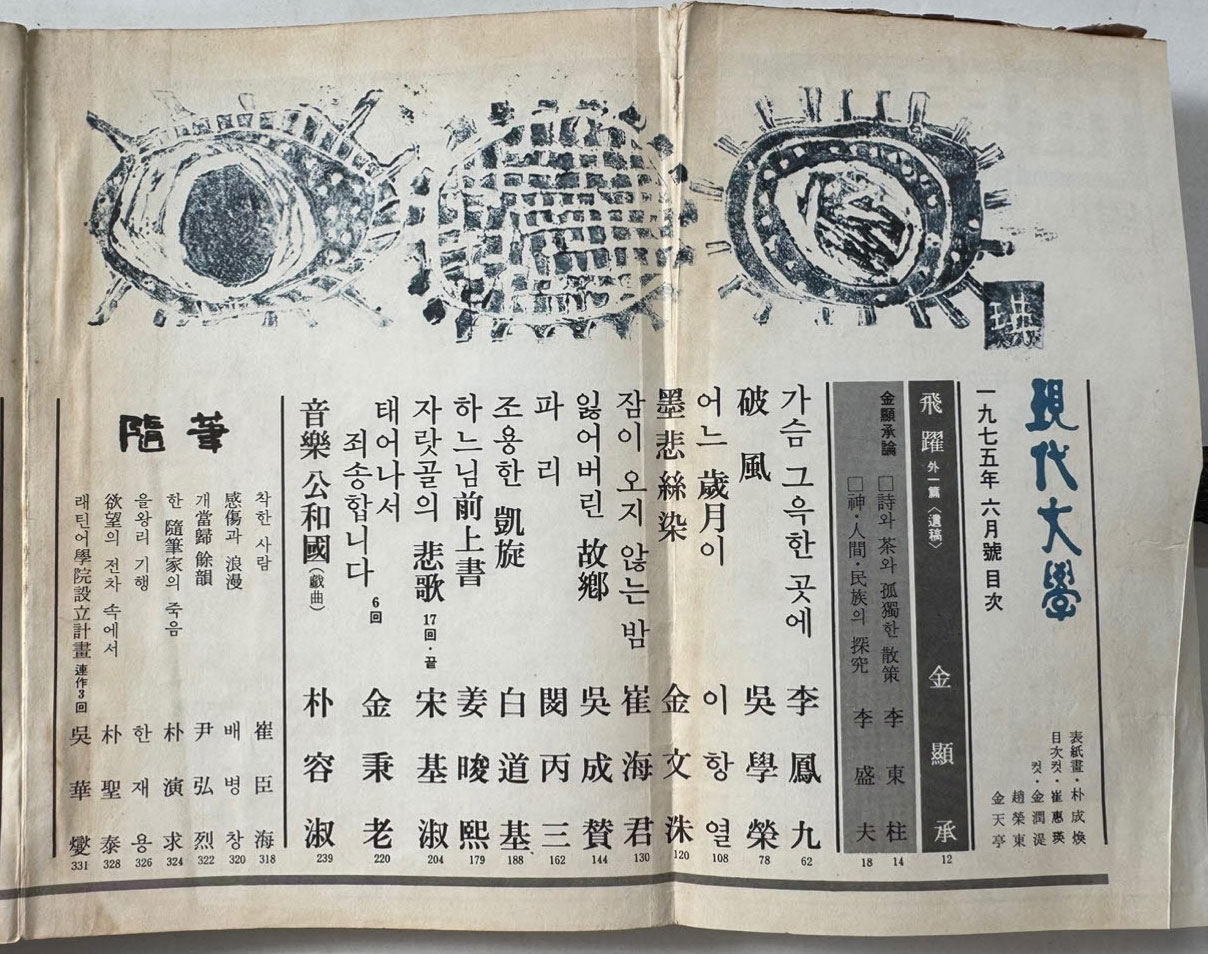 現代大學
一九七五年 六月號 目次
表紙畫·朴成煥
目次컷·崔惠瑛
컷·金潤湜
趙榮東
金天亭
飛躍 外一篇〈遺稿〉 金顯承 12
金顯承論 □詩와 茶와 孤獨한 散策 李東柱 14
□神·人間·民族의 探究 李盛夫 18
가슴 그윽한 곳에 李鳳九 62
破風 吳學榮 78
어느 歲月이 이항열 108
墨悲絲染 金文洙 120
잠이 오지 않는 밤 崔海君 130
잃어버린 故鄕 吳成贊 144
파리 閔丙三 162
조용한 凱旋 白道基 188
하느님 前上書 姜晙熙 179
자랏골의 悲歌 17回·끝 宋基淑 204
태어나서
죄송합니다 6回 金秉老 220
音樂 公和國 (戱曲) 朴容淑 239
隨筆
착한 사람 崔臣海 318
感傷과 浪漫 배병창 320
개當歸 餘韻 尹弘烈 322
한 隨筆家의 죽음 朴演求 324
을왕리 기행 한재용 326
欲望의 전차 속에서 朴聖泰 328
래틴어學院設立計畫 連作3回 吳華燮 331